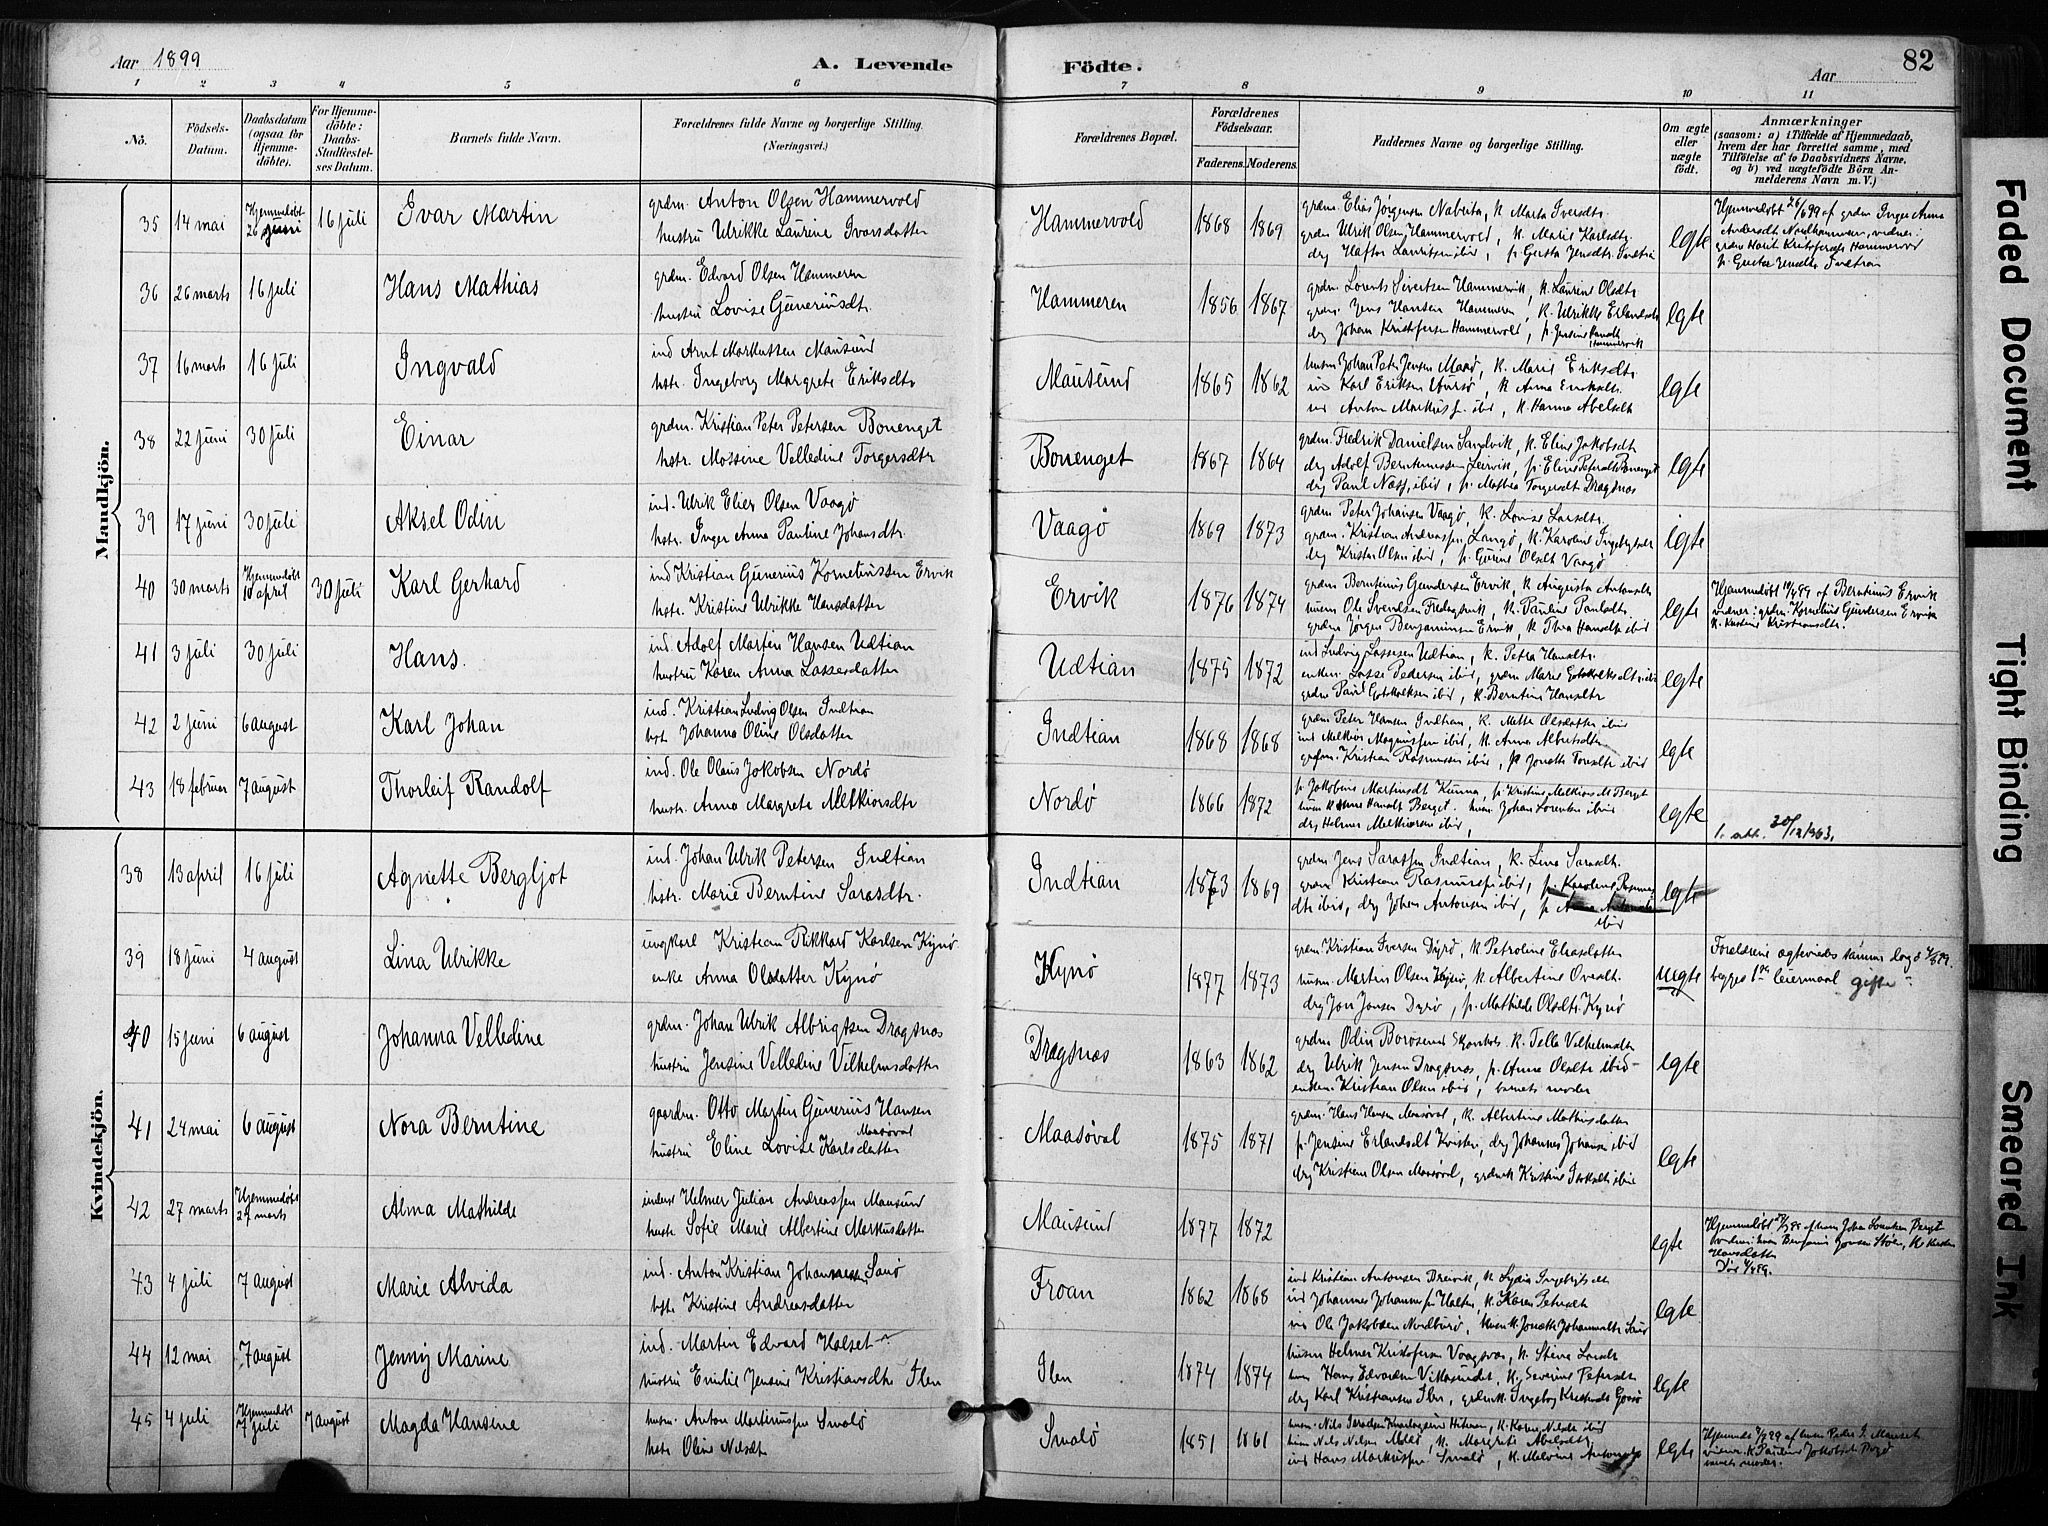 Aar 1899
A. Levende
Födte.
Aar
82
1 2 3 4 5 6 7 8 9 10 11
No.
Födsels-Datum.
Daabsdatum (ogsaa for Hjemmedöbte).
For Hjemmedöbte: Daabs-Stadfæstelses Datum.
Barnets fulde Navn.
Forældrenes fulde Navne og borgerlige Stilling. (Næringsvei.)
Forældrenes Bopæl.
Forældrenes Födselsaar.
Faderens. Moderens.
Faddernes Navne og borgerlige Stilling.
Om ægte eller uægte födt.
Anmærkninger
(saasom: a) i Tilfælde af Hjemmedaab, hvem der har forrettet samme, med Tilföielse af to Daabsvidners Navne, og b) ved uægtefödte Börn Anmelderens Navn m. V.)
Mandkjön.
35 14 mai Hjemmedøbt 26 juni 16 juli Ivar Martin
grdm. Anton Olsen Hammervold
hustru Ulrikke Laurine Ivarsdatter
Hammervold 1868 1869
grdm. Elias Jørgensen Nabeita, k. Marta Iversdtr.
grdm Ulrik Olsen Hammervold, k. Marie Karlsdtr.
drg Hafton Lauritsen ibid, p. Gusta Jensdtr. Indtian
egte
Hjemmedøbt 26/6 99 af grdm Inger Anna
36 26 marts 16 juli Hans Mathias
grdm. Edvard Olsen Hammeren
hustru Lovise Guneriusdt.
Hammeren 1856 1867
grdm. Lorents Sivertsen Hammervik, k. Laurine Olsdtr
grdm. Jens Hansen Hammeren, k. Ulrikke Erlandsdt
drg Johan Kristofersen Hammervold, p. Jensine
Hammervik
egte
37 16 marts 16 juli Ingvald
ind Arnt Markussen Mausund
hstr. Ingeborg Margrete Eriksdtr
Mausund 1865 1862
husm Johan Peter Jensen Maasø, k. Marie Eriksdtr.
ind Karl Eriksen Aursø, k Anna Eriksdt.
ind Anton Markuss. ibid, k. Hanna Abelsdt
egte
38 22 juni 30 juli Einar
grdm. Kristian Peter Petersen Bonenget
hstr. Mossine Velledine Torgersdtr
Bonenget 1867 1864
grdm. Fredrik Danielsen Sandvik, k. Eline Jakobsdt
drg Adolf Berntinussen Leirvik, p. Eline Petersdt Bonenget
drg Paul Næss, ibid, p. Mathea Torgersdt Dragsnæs
egte
39 17 juni 30 juli Aksel Odin
ind. Ulrik Elier Olsen Vaagø
hstr. Inger Anna Pauline Johansdtr.
Vaagø 1869 1873
grdm Peter Johansen Vaagø, k. Lovise Larsdtr.
grdm. Kristian Andreassen Langø, k. Karoline Ingebrigtsdt
drg Kristen Olsen ibid, p. Gurine Olsdt Vaagø
egte
40 30 marts Hjemmedøbt 10 april 30 juli Karl Gerhard
ind Kristian Gunerius Korneliussen Ervik
hstr. Kristine Ulrikke Hansdatter
Ervik 1876 1874
grdm Berntinus Gundersen Ervik, k Augusta Antonsdt
husm Ole Svendsen Fredagsvik, k. Pauline Paulsdt
grdm Jørgen Benjaminsen Ervik, k Thea Hansdtr ibid
egte
Hjemmedøbt 10/4 99 af Berntinus Ervik
vidner: grdm. Kornelius Gundersen Ervik
k. Kristine Kristiansdtr.
41 3 juli 30 juli Hans.
ind. Adolf Martin Hansen Udtian
hustru Karen Anna Lassesdatter
Udtian 1875 1872
ind Ludvig Lassesen Udtian, k. Petra Hansdtr.
enkm. Lasse Pedersen ibid, grdm Marie Gotskalksdt ibid
grdm Paul Gotskalksen ibid, k. Berntine Hansdtr
egte
42 2 juni 6 august Karl Johan
ind. Kristian Ludvig Olsen Indtian
hst. Johanna Oline Olsdatter
Indtian 1868 1868
grdm Peter Hansen Indtian, k. Mette Olsdatter ibid
ind Melkior Magnussen ibid, k. Anna Albertsdtr
grdm. Kristian Rasmussen ibid, ibid
egte
43 18 februar 7 august Thorleif Randolf
ind. Ole Olaus Jakobsen Nordø
hustr. Anna Margrete Melkiorsdtr
Nordø 1866 1872
p. Jakobine Martinsdt Kunna, p. Kristine Melkiors M Berget
husm Hansdt Berget. husm. Johan Lorentsen ibid
drg Helmer Melkiorsen ibid,
egte
1. att. 30/12 1963.
Kvindekjön.
38 13 april 16 juli Agnette Bergljot
ind. Johan Ulrik Petersen Indtian
hstr. Marie Berntine Sarasdtr.
Indtian 1873 1869
grdm Jens Sarassen Indtian, k. Lina Sarasdt.
grdm Kristian Rasmussen ibid, p. Karoline Rasmus
dtr ibid, drg Johan Antonsen ibid, p. Anna
ibid
egte
39 18 juni 4 august Lina Ulrikke
ungkarl Kristian Rikkard Karlsen Kyнø
enke Anna Olsdatter Kynø
Kynø 1877 1873
grdm. Kristian Iversen Dyrø, k Petroline Eliasdatter
husm. Martin Olsen Kynø, k. Albertine Ovesdt.
drg Jon Jonsen Dyrø, p. Mathilde Olsdtr. Kynø
uegte
Foreldrene egtevies samme dag 4/8 99.
begges 1ste leiermaal gifte
40 15 juni 6 august Johanna Velledine
grdm. Johan Ulrik Albrigtsen Dragsnæs
hustru Jensine Velledine Vilhelmsdatter
Dragsnæs 1863 1862
grdm Odin Borøsund k. Telle Vilhelmsdt
drg Ulrik Jensen Dragsnæs, p. Anna Olsdtr ibid
enkem. Kristian Olsen ibid, barnets moder
egte
41 24 mai 6 august Nora Berntine
gaardm. Otto Martin Gunerius Hansen
Maasøval
hustru Eline Lovise Karlsdatter
Maasøval 1875 1871
grdm. Hans Hansen Maasøval, k. Albertine Mathiasdatter
p. Jensine Erlandsdt Kvisten, drg Johannes Johansen ibid
drg Kristian Olsen Maasøval, grdmk Kristine ibid
egte
42 27 marts Hjemmedøbt 27 marts Alma Mathilde
inderst Helmer Julian Andreassen Mausund
hustr Sofie Marie Albertine Markusdatter
Mausund 1877 1872
egte
Hansdatter
43 4 juli 7 august Marie Alvida
ind. Anton Kristian Johannessen Sanø
hstr Kristine Andreasdatter
Froan 1862 1868
ind Kristian Antonsen Breivik, k Lydia Ingebrigtsdt
ind Johannes Johannessen Halten, k. Karen Petersdt
ind Ole Jakobsen Nordburø,
egte
44 12 mai 7 august Jenny Marine
ind. Martin Edvard Halset
hustru Emilie Jensine Kristiansdtr Ilen
Ilen 1874 1874
husm Helmer Kristofersen Vaagsnæs, k. Stina Larsdt
husm Hans Edvardsen Vikasundet, k. Severine Petersdt
drg Karl Kristiansen Ilen, grdmk. Ingeborg
egte
45 4 juli Hjemmedøbt 7 juli 7 august Magda Hansine
husm. Anton Martinussen Smalø
hstr Oline Nilsdt
Smalø 1851 1861
husm Nils Nilsen k. Margrete Abelsdtr.
ind Hans Markussen Smalø, k. Malvine
egte
barnets moder.
Faded Document
Tight Binding
Smeared Ink